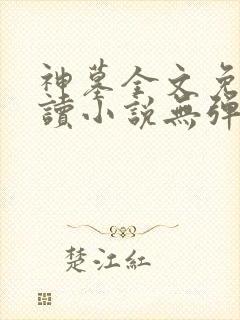 神墓全文免
讀小說無彈
楚江紅